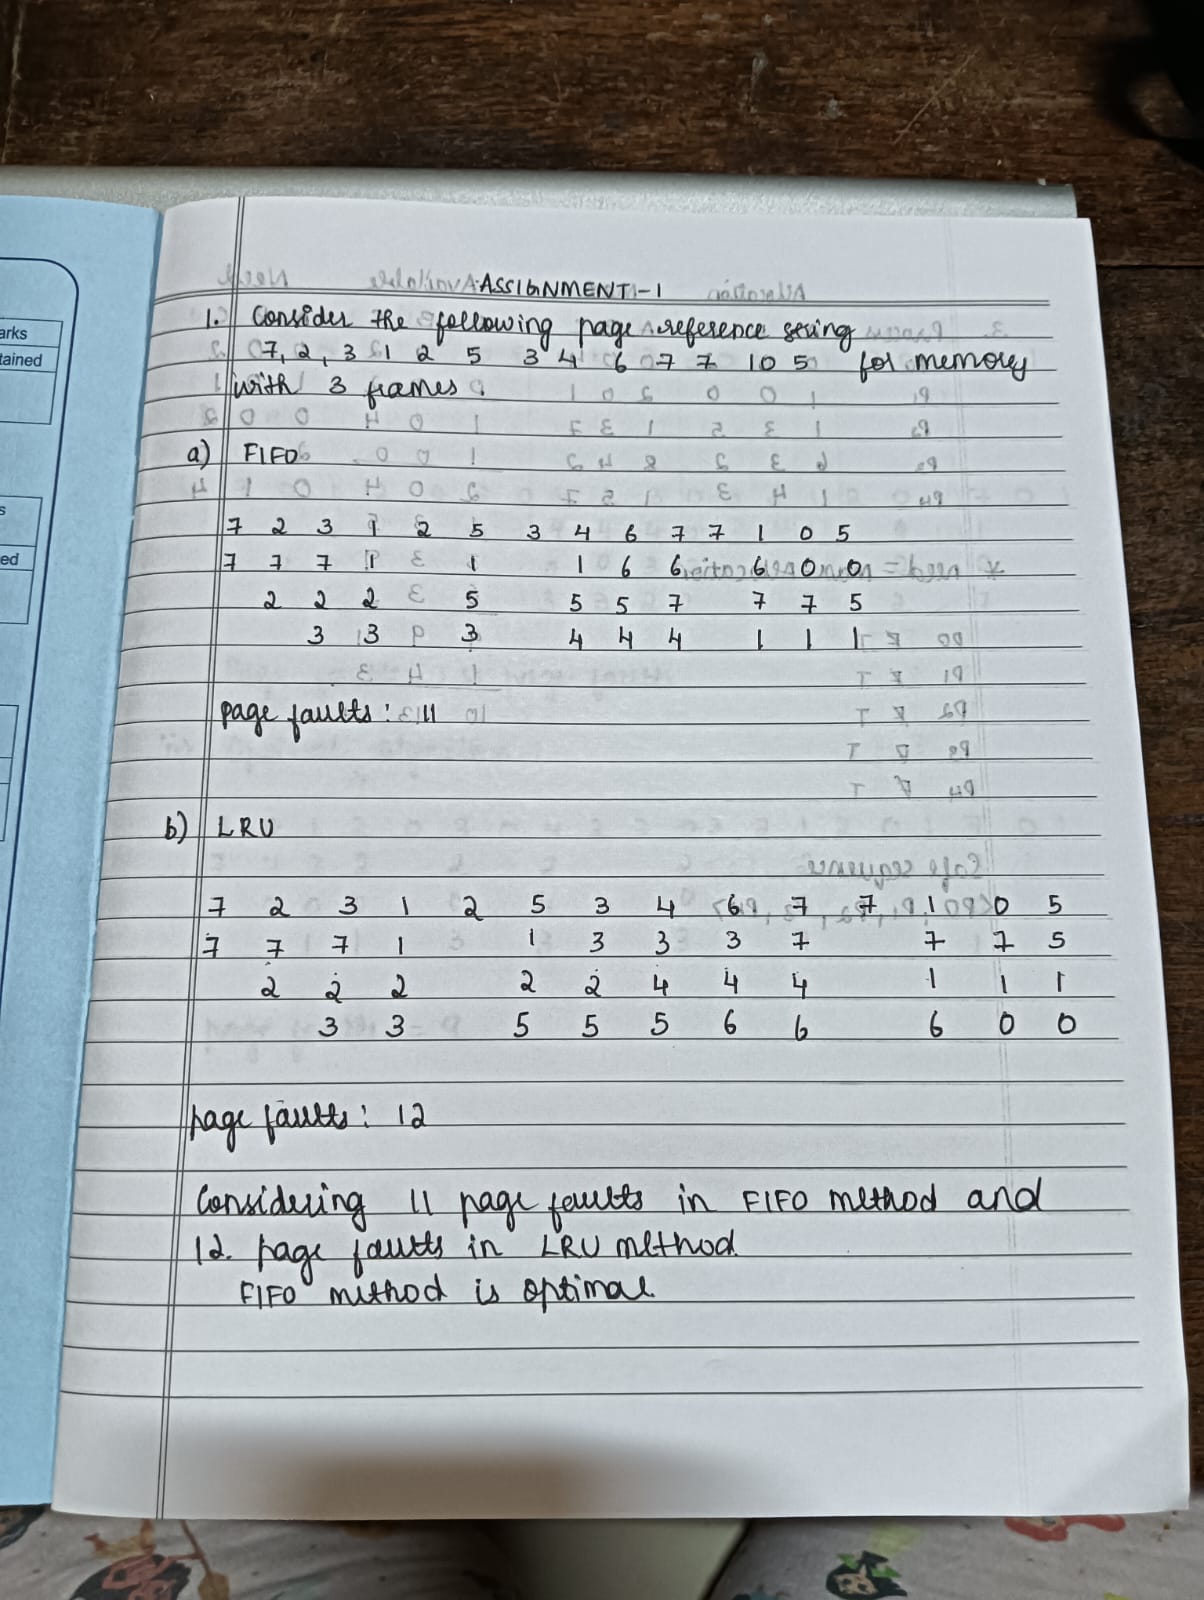 ASSIGNMENT-1
1. Consider the following page reference string
7, 2, 3 1 2 5 3 4 6 7 7 1 0 5 for memory
with 3 frames.
a) FIFO
7 2 3 1 2 5 3 4 6 7 7 1 0 5
7 7 7 1 1 1 6 6 6 0 0
2 2 2 5 5 5 7 7 7 5
3 3 3 4 4 4 1 1 1
page faults: 11
b) LRU
7 2 3 1 2 5 3 4 6 7 7 1 0 5
7 7 7 1 1 3 3 3 7 7 7 5
2 2 2 2 2 4 4 4 1 1 1
3 3 5 5 5 6 6 6 0 0
page faults: 12
Considering 11 page faults in FIFO method and
12. page faults in LRU method
FIFO method is optimal
arks
tained
s
ed